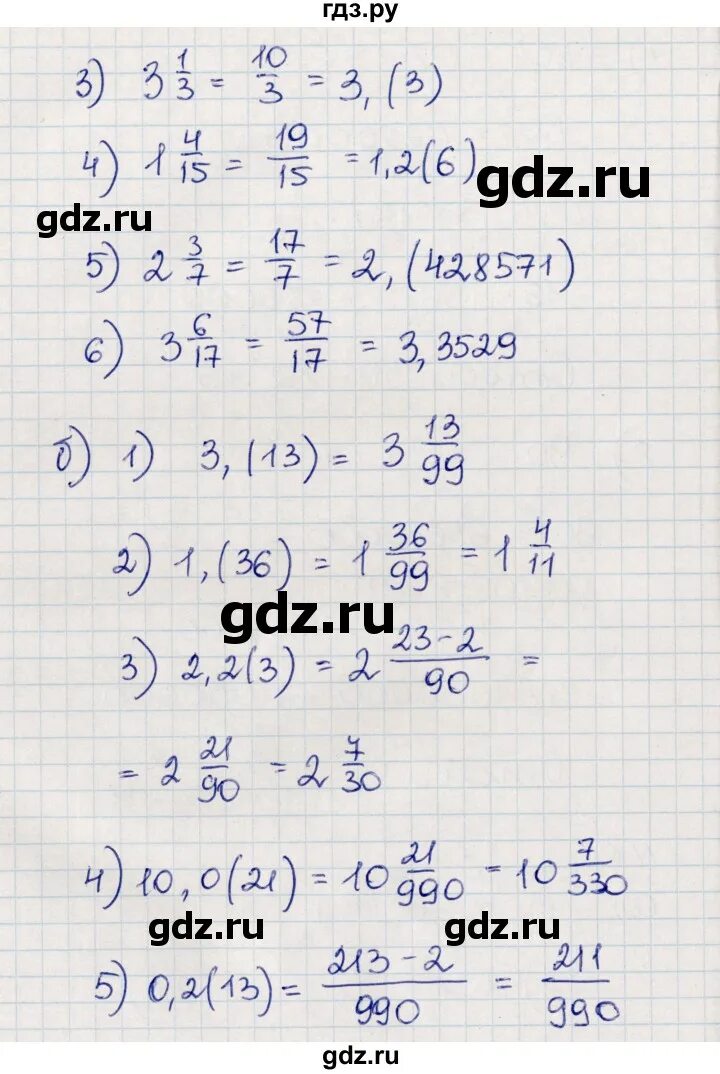 гдз.ру
3) 3 1/3 = 10/3 = 3,(3)
4) 1 4/15 = 19/15 = 1,2(6)
gdz.ru
gdz.ru
5) 2 3/7 = 17/7 = 2,(428571)
6) 3 6/17 = 57/17 = 3,3529
б) 1) 3,(13) = 3 13/99
2) 1,(36) = 1 36/99 = 1 4/11
gdz.ru
3) 2,2(3) = 2 23-2/90 =
= 2 21/90 = 2 7/30
4) 10,0(21) = 10 21/990 = 10 7/330
gdz.ru
gdz.ru
5) 0,2(13) = 213-2/990 = 211/990
gdz.ru